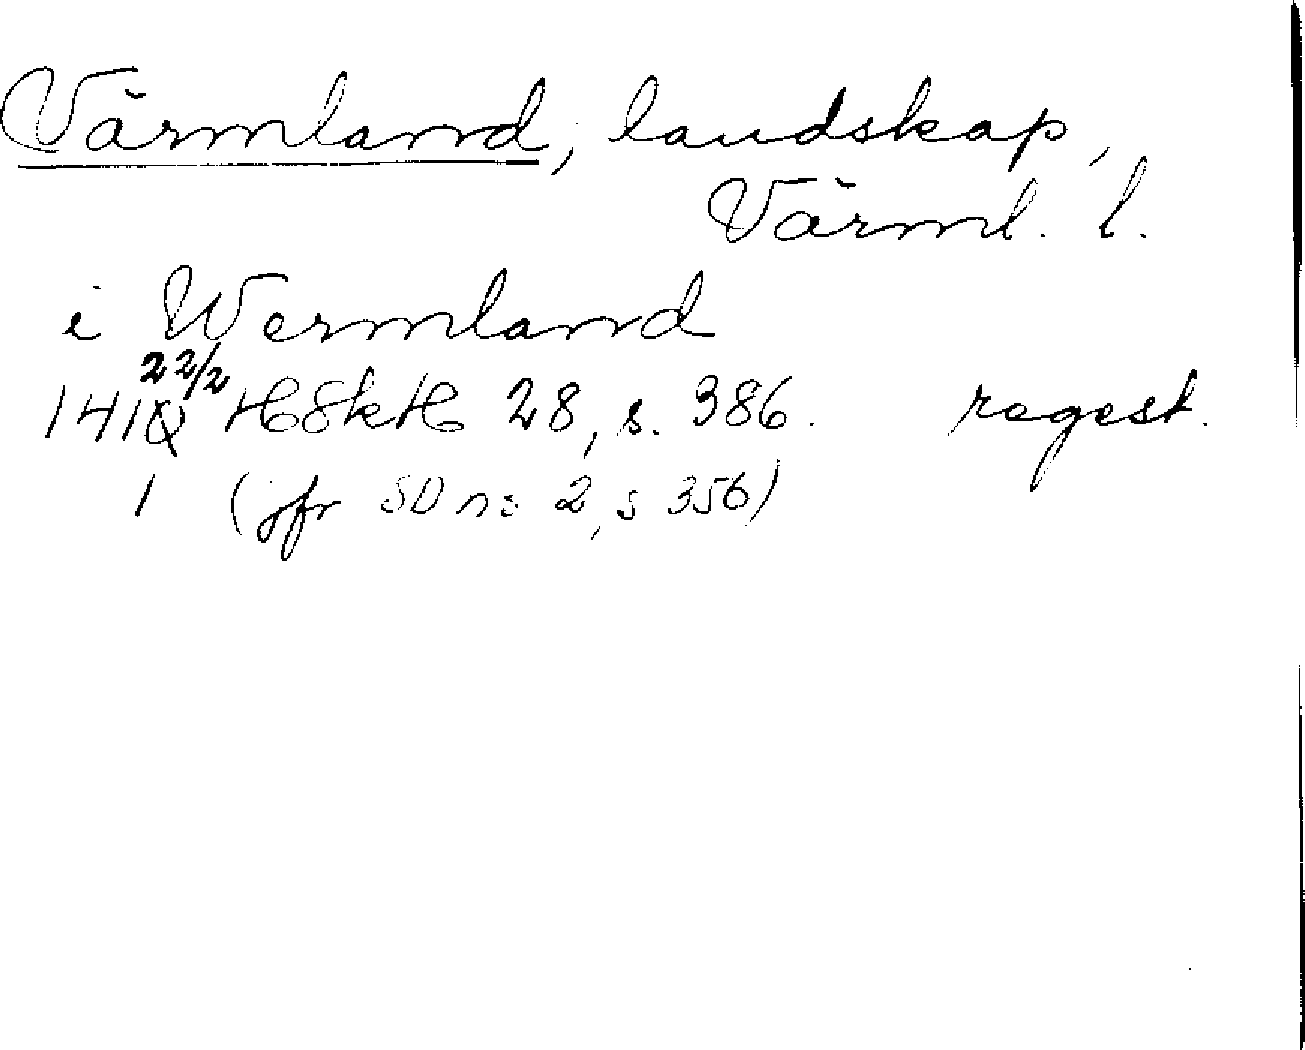 Värmland, landskap,
Värml. l.
i Wermland
22/2
141Q HSkH 28, s. 386. regest.
1 (jfr SD ns 2, s 356)